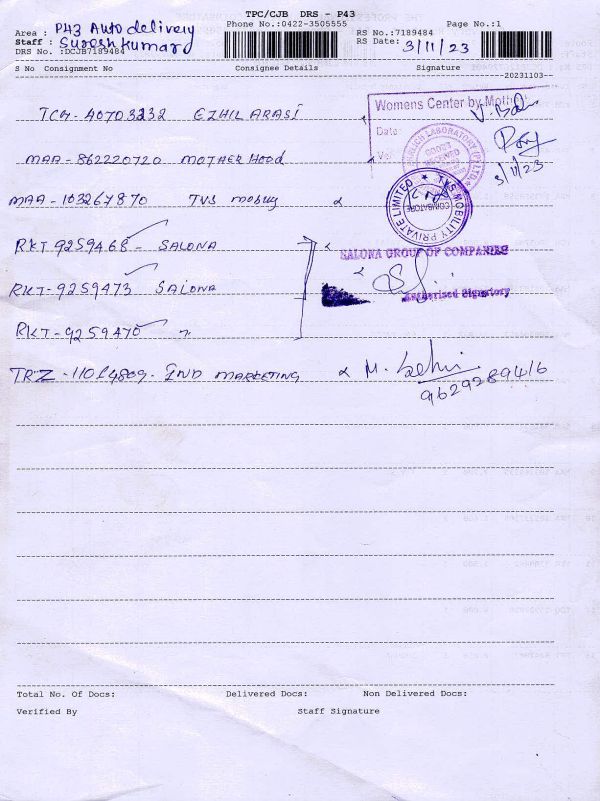 TPC/CJB DRS - P43
Area : P43 Auto delivery
Phone No.:0422-3505555
Page No.:1
Staff : Sureshkumar
RS No.:7189484
DRS No. :DCJB7189484
RS Date: 3/11/23
S No Consignment No Consignee Details Signature
20231103
TCH-40703232 EZHIL ARASI
Womens Center by
Date:
MAA-862220720 MOTHER HOOD
3/11/23
MAA-103267870 TVS mobility
TVS MOBILITY PRIVATE LIMITED
COIMBATORE
RKT 9259468 - SALONA
SALONA GROUP OF COMPANIES
RKT-9259473 SALONA
Authorised Signatory
RKT-9259470 "
TRZ - 11014809 - IND MARKETING
9629289416
Total No. Of Docs: Delivered Docs: Non Delivered Docs:
Verified By Staff Signature